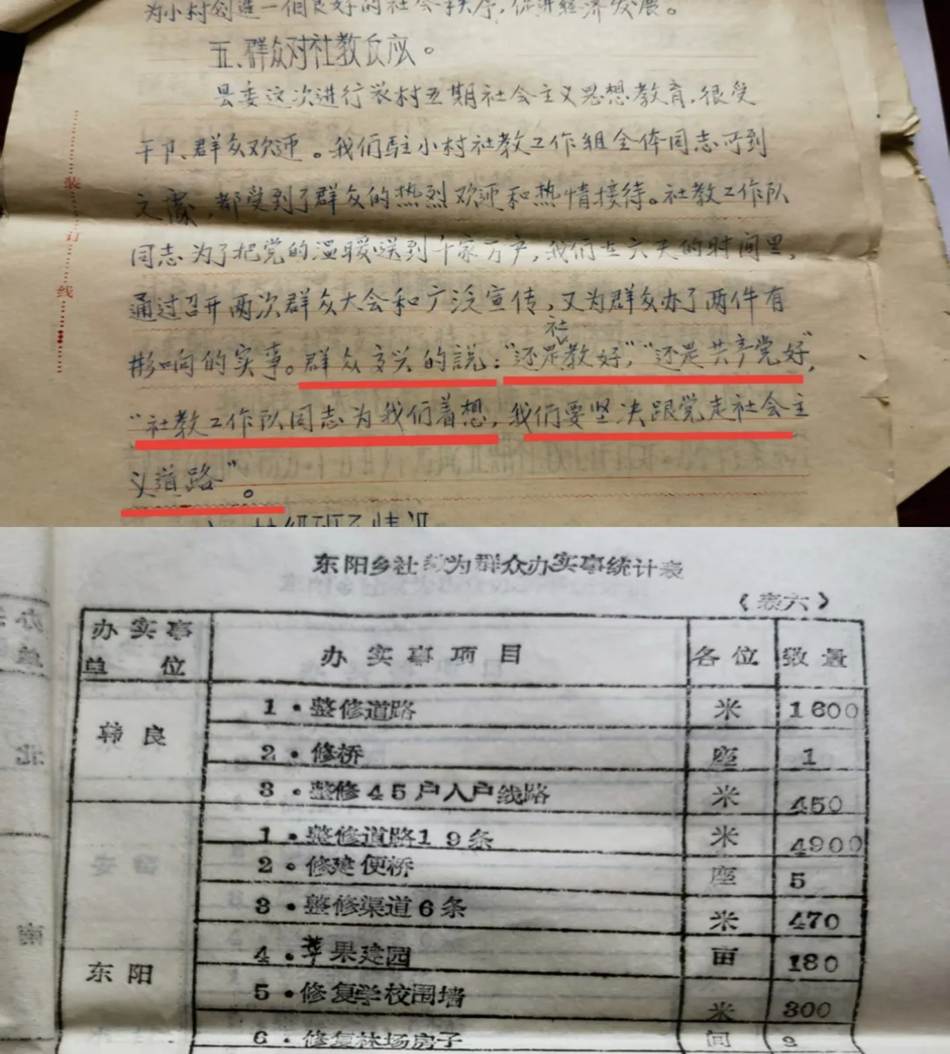 为小村创造一个良好的社会秩序,促进经济发展。
五、群众对社教反应。
县委这次进行农村五期社会主义思想教育,很受
干卩、群众欢迎。我们驻小村社教工作组全体同志所到
之处,都受到了群众的热烈欢迎和热情接待。社教工作队
同志为了把党的温暖送到千家万户,我们在六天的时间里,
通过召开两次群众大会和广泛宣传,又为群众办了两件有
影响的实事。群众高兴的説:“还是社教好”,“还是共产党好”,
“社教工作队同志为我们着想,我们要坚决跟党走社会主
义道路”。
装
订
线
东阳乡社教为群众办实事统计表
《表六》
办实事单位 办实事项目 各位 数量
韩良 1·整修道路 米 1600
2·修桥 座 1
3·整修45户入户线路 米 450
1·整修道路19条 米 4900
2·修建便桥 座 5
3·整修渠道6条 米 470
4·苹果建园 亩 180
东阳 5·修复学校围墙 米 300
6·修复林场房子 间